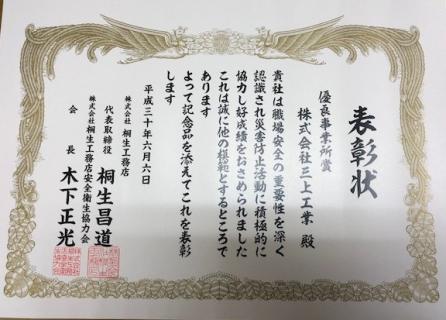 表彰状
優良事業所賞
株式会社三上工業 殿
貴社は職場安全の重要性を深く
認識され災害防止活動に積極的に
協力し好成績をおさめられました
これは誠に他の模範とするところで
あります
よって記念品を添えてこれを表彰
します
平成三十年六月六日
株式会社 桐生工務店
代表取締役 桐生昌道
株式会社桐生工務店安全衛生協力会
会長 木下正光